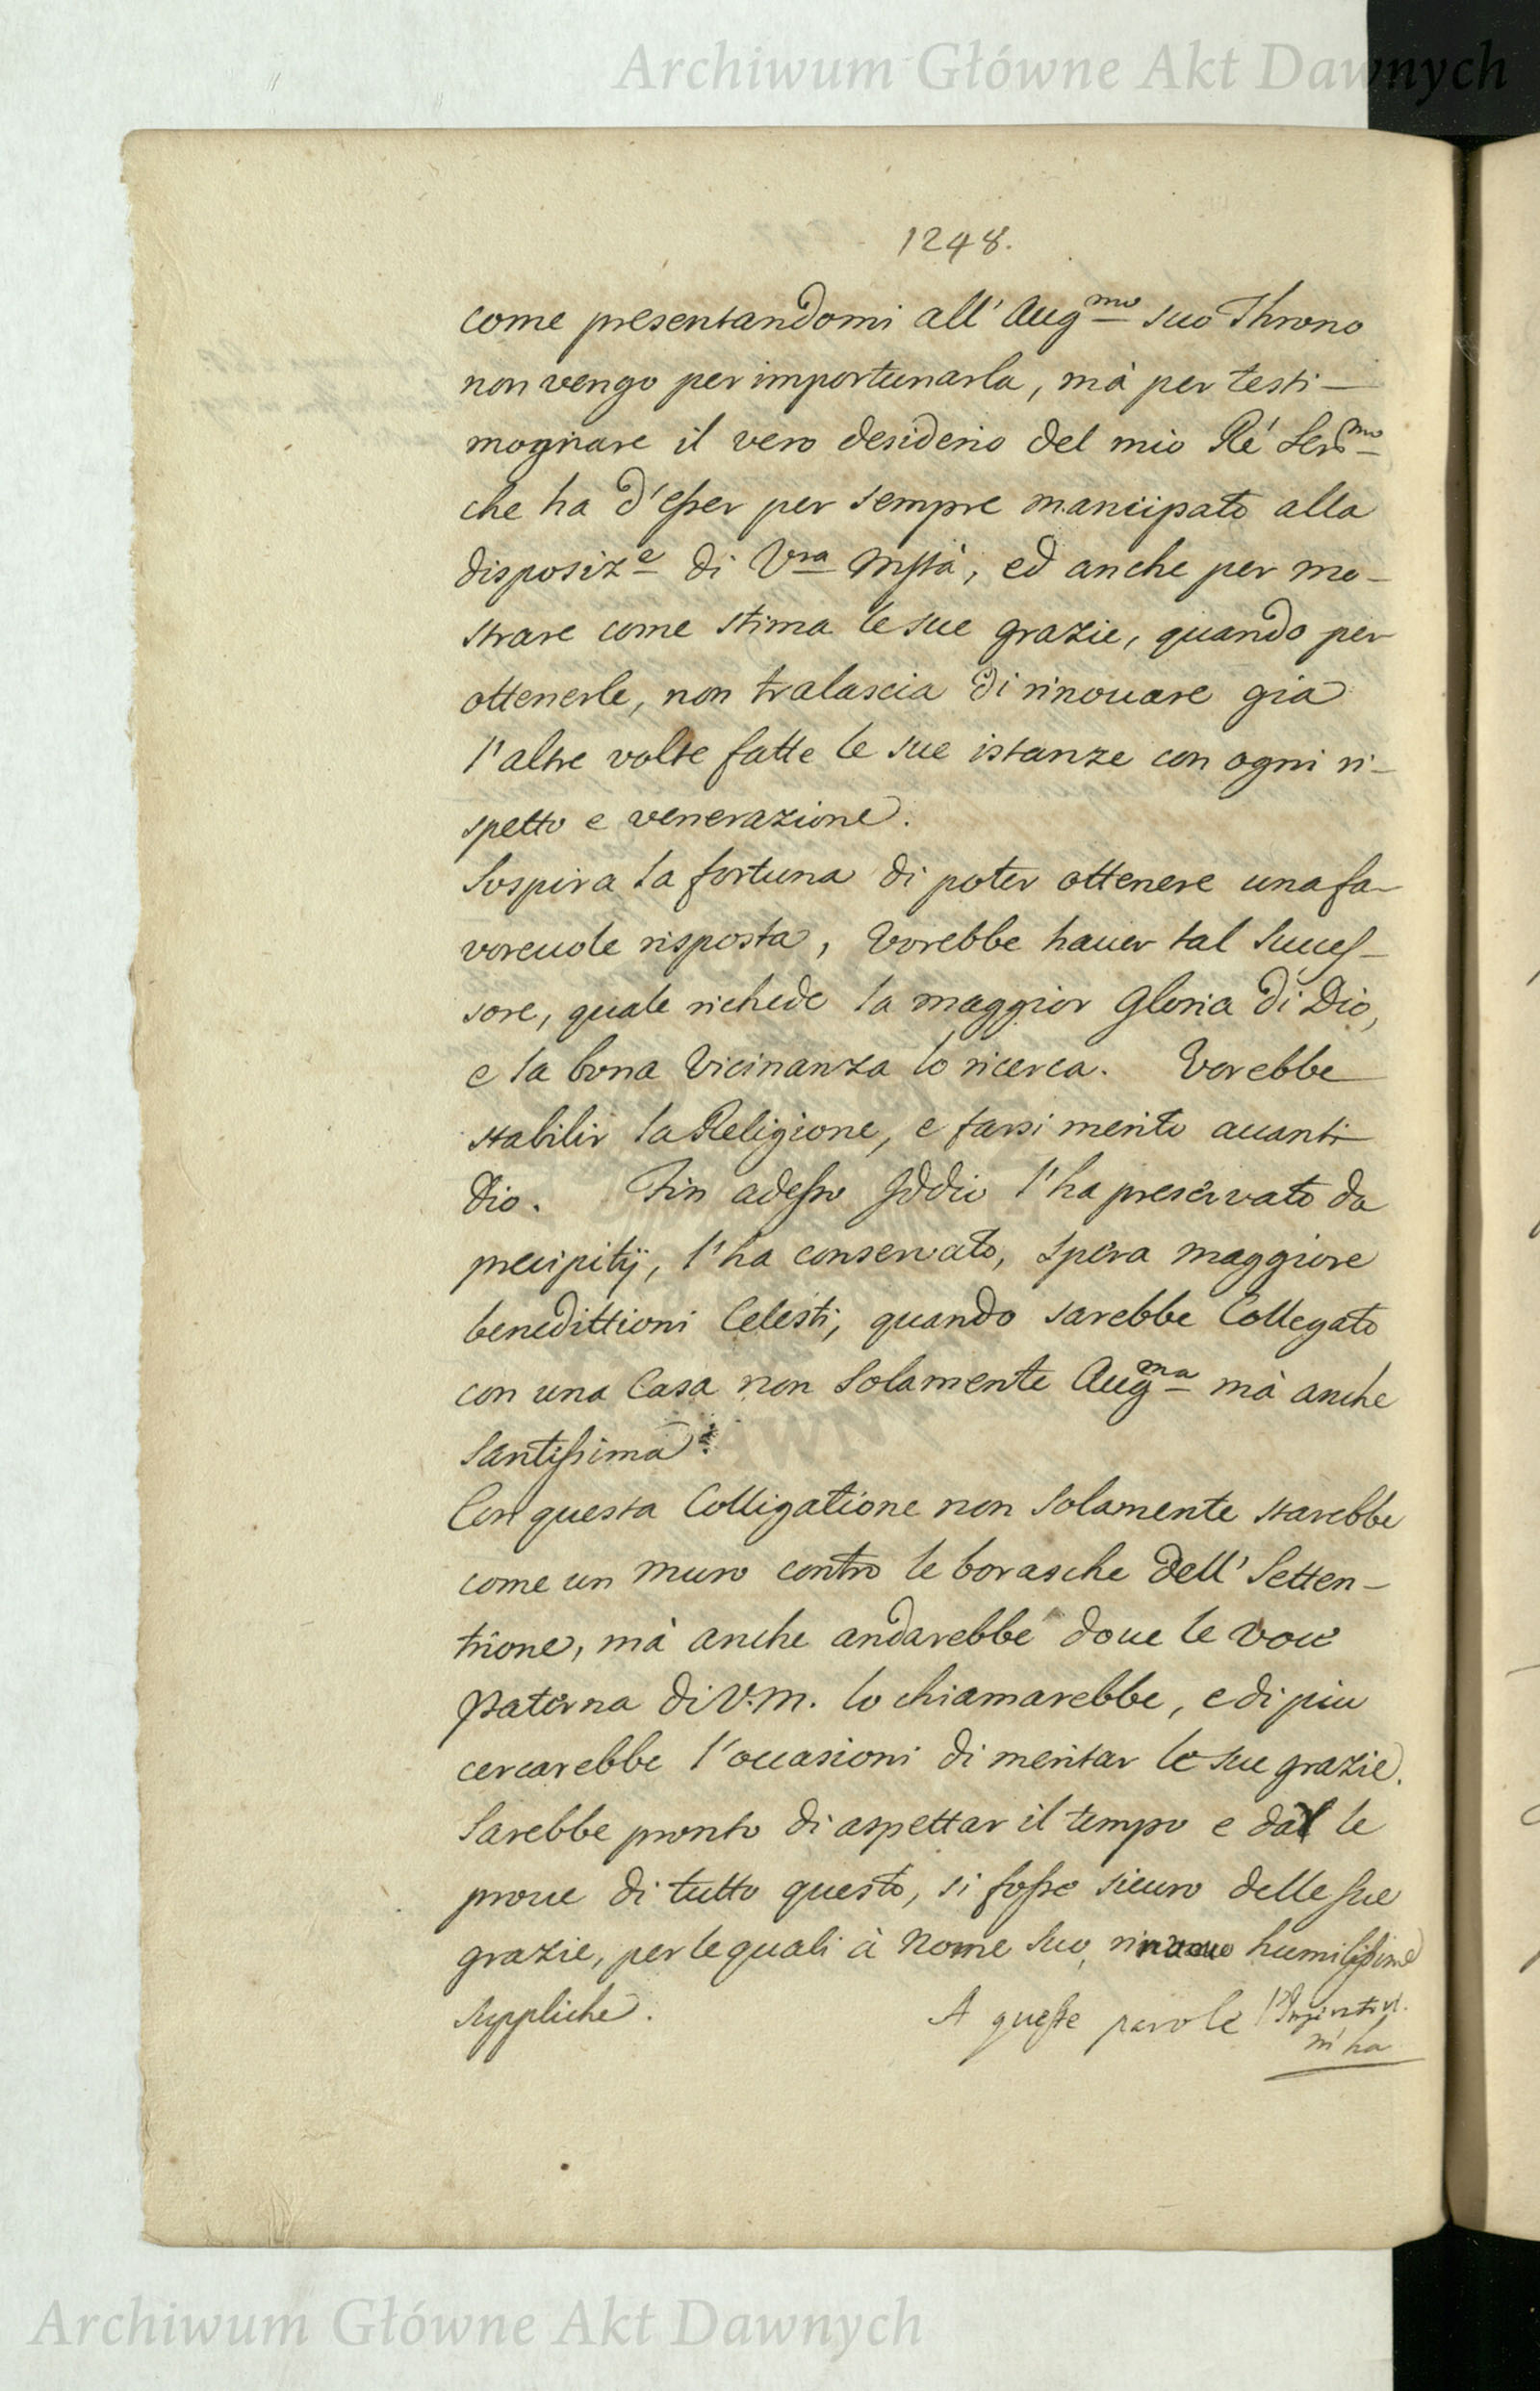 Archiwum Główne Akt Dawnych
1248.
come presentandomi all' Aug.mo suo Throno
non vengo per importunarla, mà per testi-
mogniare il vero desiderio del mio Ré Ser.mo
che ha d'esser per sempre mancipato alla
disposiz.e di V.ra Mstà, ed anche per mo-
strare come stima le sue grazie, quando per
ottenerle, non tralascia di rinouare già
l'altre volte fatte le sue istanze con ogni ri-
spetto e venerazione.
Sospira la fortuna di poter ottenere una fa-
voreuole risposta, Vorebbe hauer tal Succes-
sore, quale richede la maggior Gloria di Dio,
e la bona Vicinanza lo ricerca. Vorebbe
stabilir la Religione, e farsi merito auanti
Dio. Fin adesso Iddio l'ha preservato da
precipitij, l'ha conservato, spera maggiore
benedittioni Celesti, quando sarebbe Collegato
con una Casa non Solamente Aug.ma mà anche
Santissima.
Con questa Colligatione non Solamente starebbe
come un muro contro le borasche dell' Setten-
trione, mà anche andarebbe doue le voce
Paterna di V.M. lo chiamarebbe, e di piu
cercarebbe l'occasioni di meritar le sue grazie.
Sarebbe pronto di aspettar il tempo e dar le
proue di tutto questo, si fosse sicuro delle sue
grazie, per le quali à Nome Suo, rinouo humilissime
suppliche. A queste parole l'
m'ha
Archiwum Główne Akt Dawnych